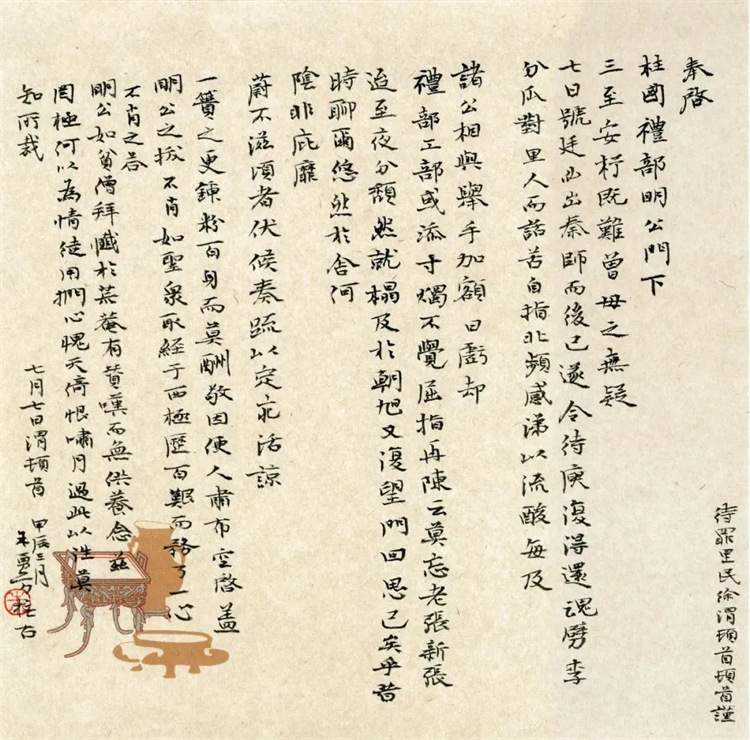 待罪里民徐渭頓首頓首謹
奉啓
柱國禮部明公門下
三至安杼既難曾母之無疑
七日號廷必出秦師而後已遂令待庚復得還魂劈李
分瓜對里人而話苦自指北頻感涕以流酸每及
諸公相與舉手加額曰虧却
禮部工部或添寸燭不覺屈指再陳云莫忘老張新張
迨至夜分頹然就榻及於朝旭又復望門回思已矣乎昔
時聊爾悠然於舍何
陰非庇靡
蔚不滋頃者伏候奏疏以定死活諒
一簣之更錬粉百身而莫酬敬因便人肅布空啓蓋
明公之援不肖如聖泉取経于西極歷百艱而務了一心
不肖之荅
明公如貧僧拜懺於茅菴有贊嘆而無供養念茲
罔極何以為情徒用捫心愧天倚恨嘯月過此以往莫
知所裁
七月七日渭頓首
甲辰三月
朱勇方